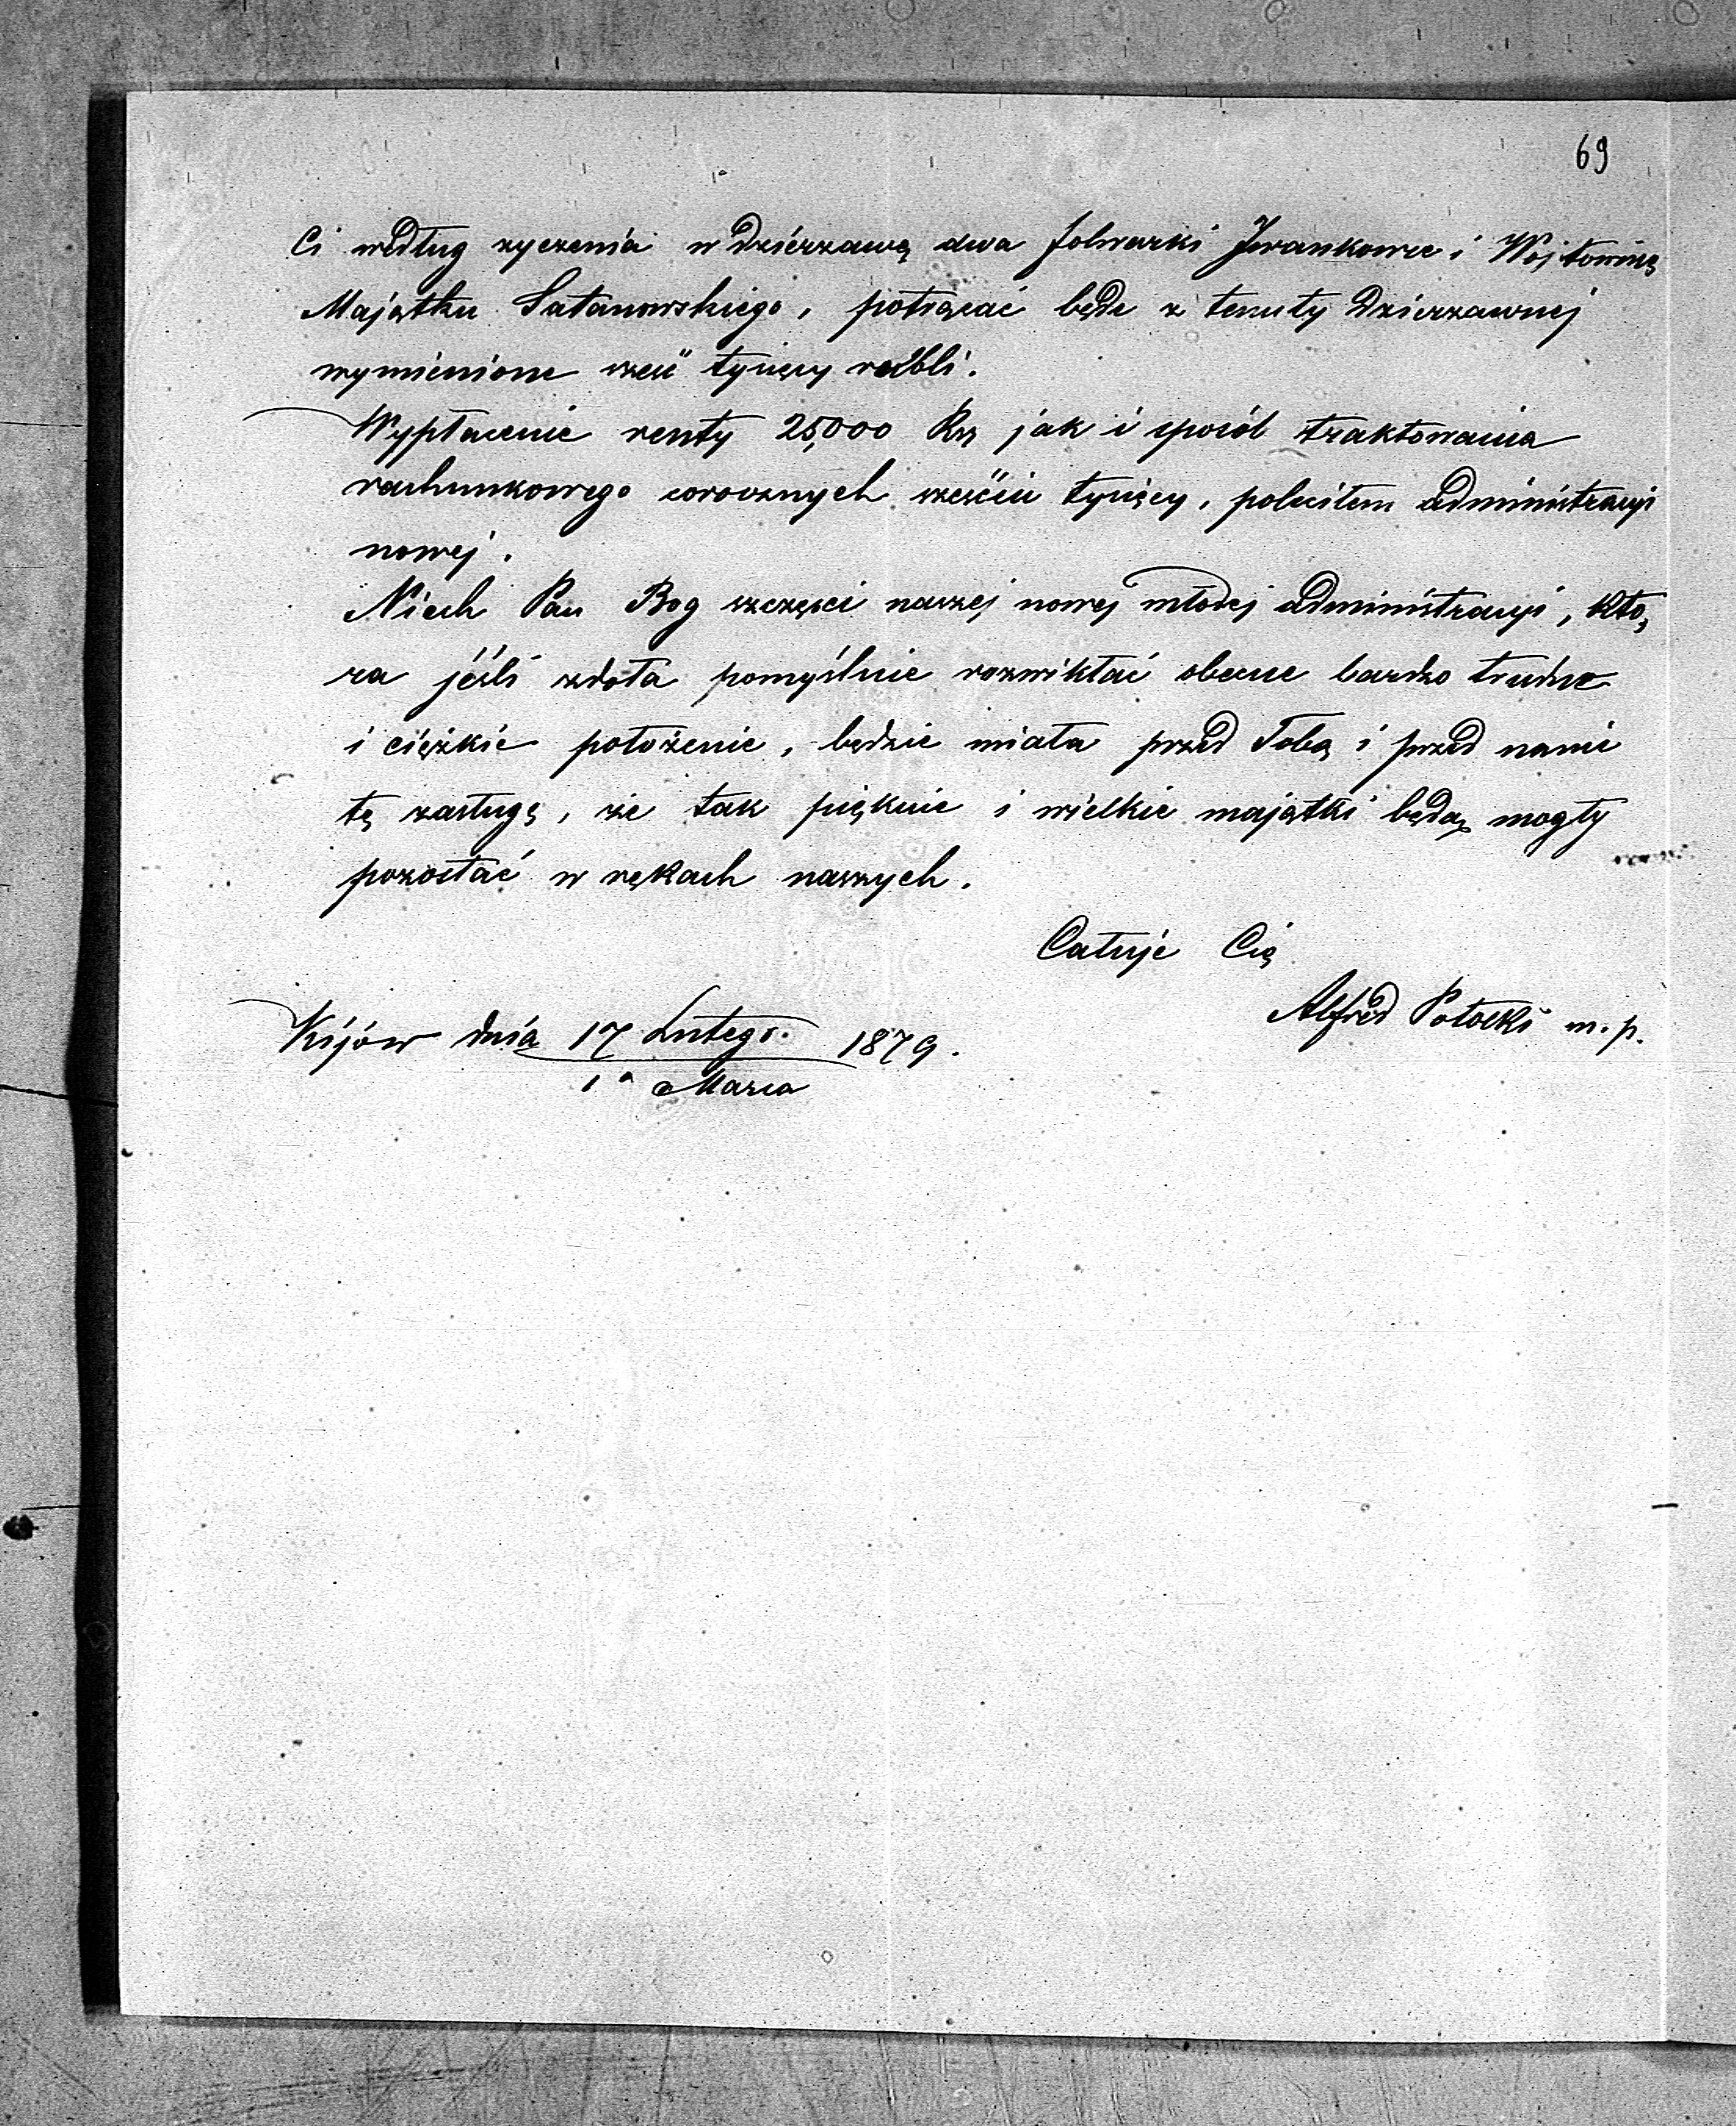 69
Ci według zyczenia w dzierzawę dwa folwarki Iwankowce i Wojtowinę
Majątku Satanowskiego, potrącać będe z tenuty dzierzawnej
wymienione sześć tysięcy rubli.
Wypłacenie renty 25,000 Rs jak i sposób traktowania
rachunkowego corocznych sześciu tysięcy, poleciłem administracyi
nowej.
Niech Pan Bog szczęsci naszej nowej młodej administracyi, któ,
ra jeśli zdoła pomyślnie rozwikłać obecne bardzo trudne
i ciężkie położenie, będzie miała przed Tobą i przed nami
tę zasługę, że tak pięknie i wielkie majątki będą mogły
pozostać w rękach naszych.
Całuje Cię
Alfred Potocki m.p.
Kijów dnia 17 Lutego. 1879.
1 a Marca